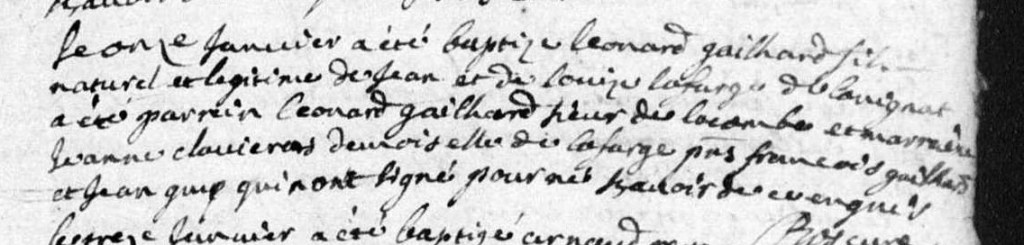 le onze Janvier a été baptize leonard gailhard fils
naturel et legitime de Jean et de louize lafarge de lavignat
a été parrein leonard gailhard sieur de lacombe et marraine
Jeanne clavieras demoiselle de lafarge pns francois gailhard
et Jean qui n'ont signé pour ne scavoir de ce enquis
le treze Janvier a été baptize arnaud